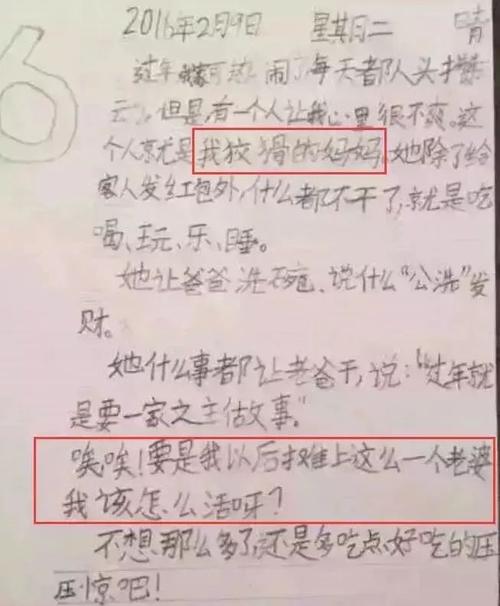 6
2016年2月9日 星期二 晴
过年我家可热闹了每天都人头攒
动。但是,有一个人让我心里很不爽。这
个人就是我狡猾的妈妈,她除了给
客人发红包外,什么都不干了,就是吃
喝、玩、乐、睡。
她让爸爸洗碗,说什么“公洗”发
财。
她什么事都让老爸干,说:“过年就
是要一家之主做事。”
唉,唉!要是我以后摊上这么一个老婆
我该怎么活呀?
不想那么多了,还是多吃点好吃的压
压惊吧!